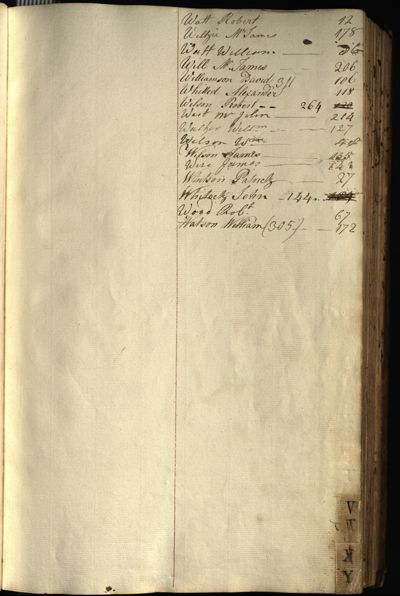 Watt Robert 12
Wellzie Mr James 178
Watt William
Will Mr James 206
Williamson David 311 106
Whitted Alexander 118
Wilson Robert -- 264
West Mr John 214
Walker Wilson 127
Wilson Wm
Wilson James
Weir James
Winlson Patrick 27
John 144
Wood Robt 67
Watson William (305) 172
V
W
X
Y